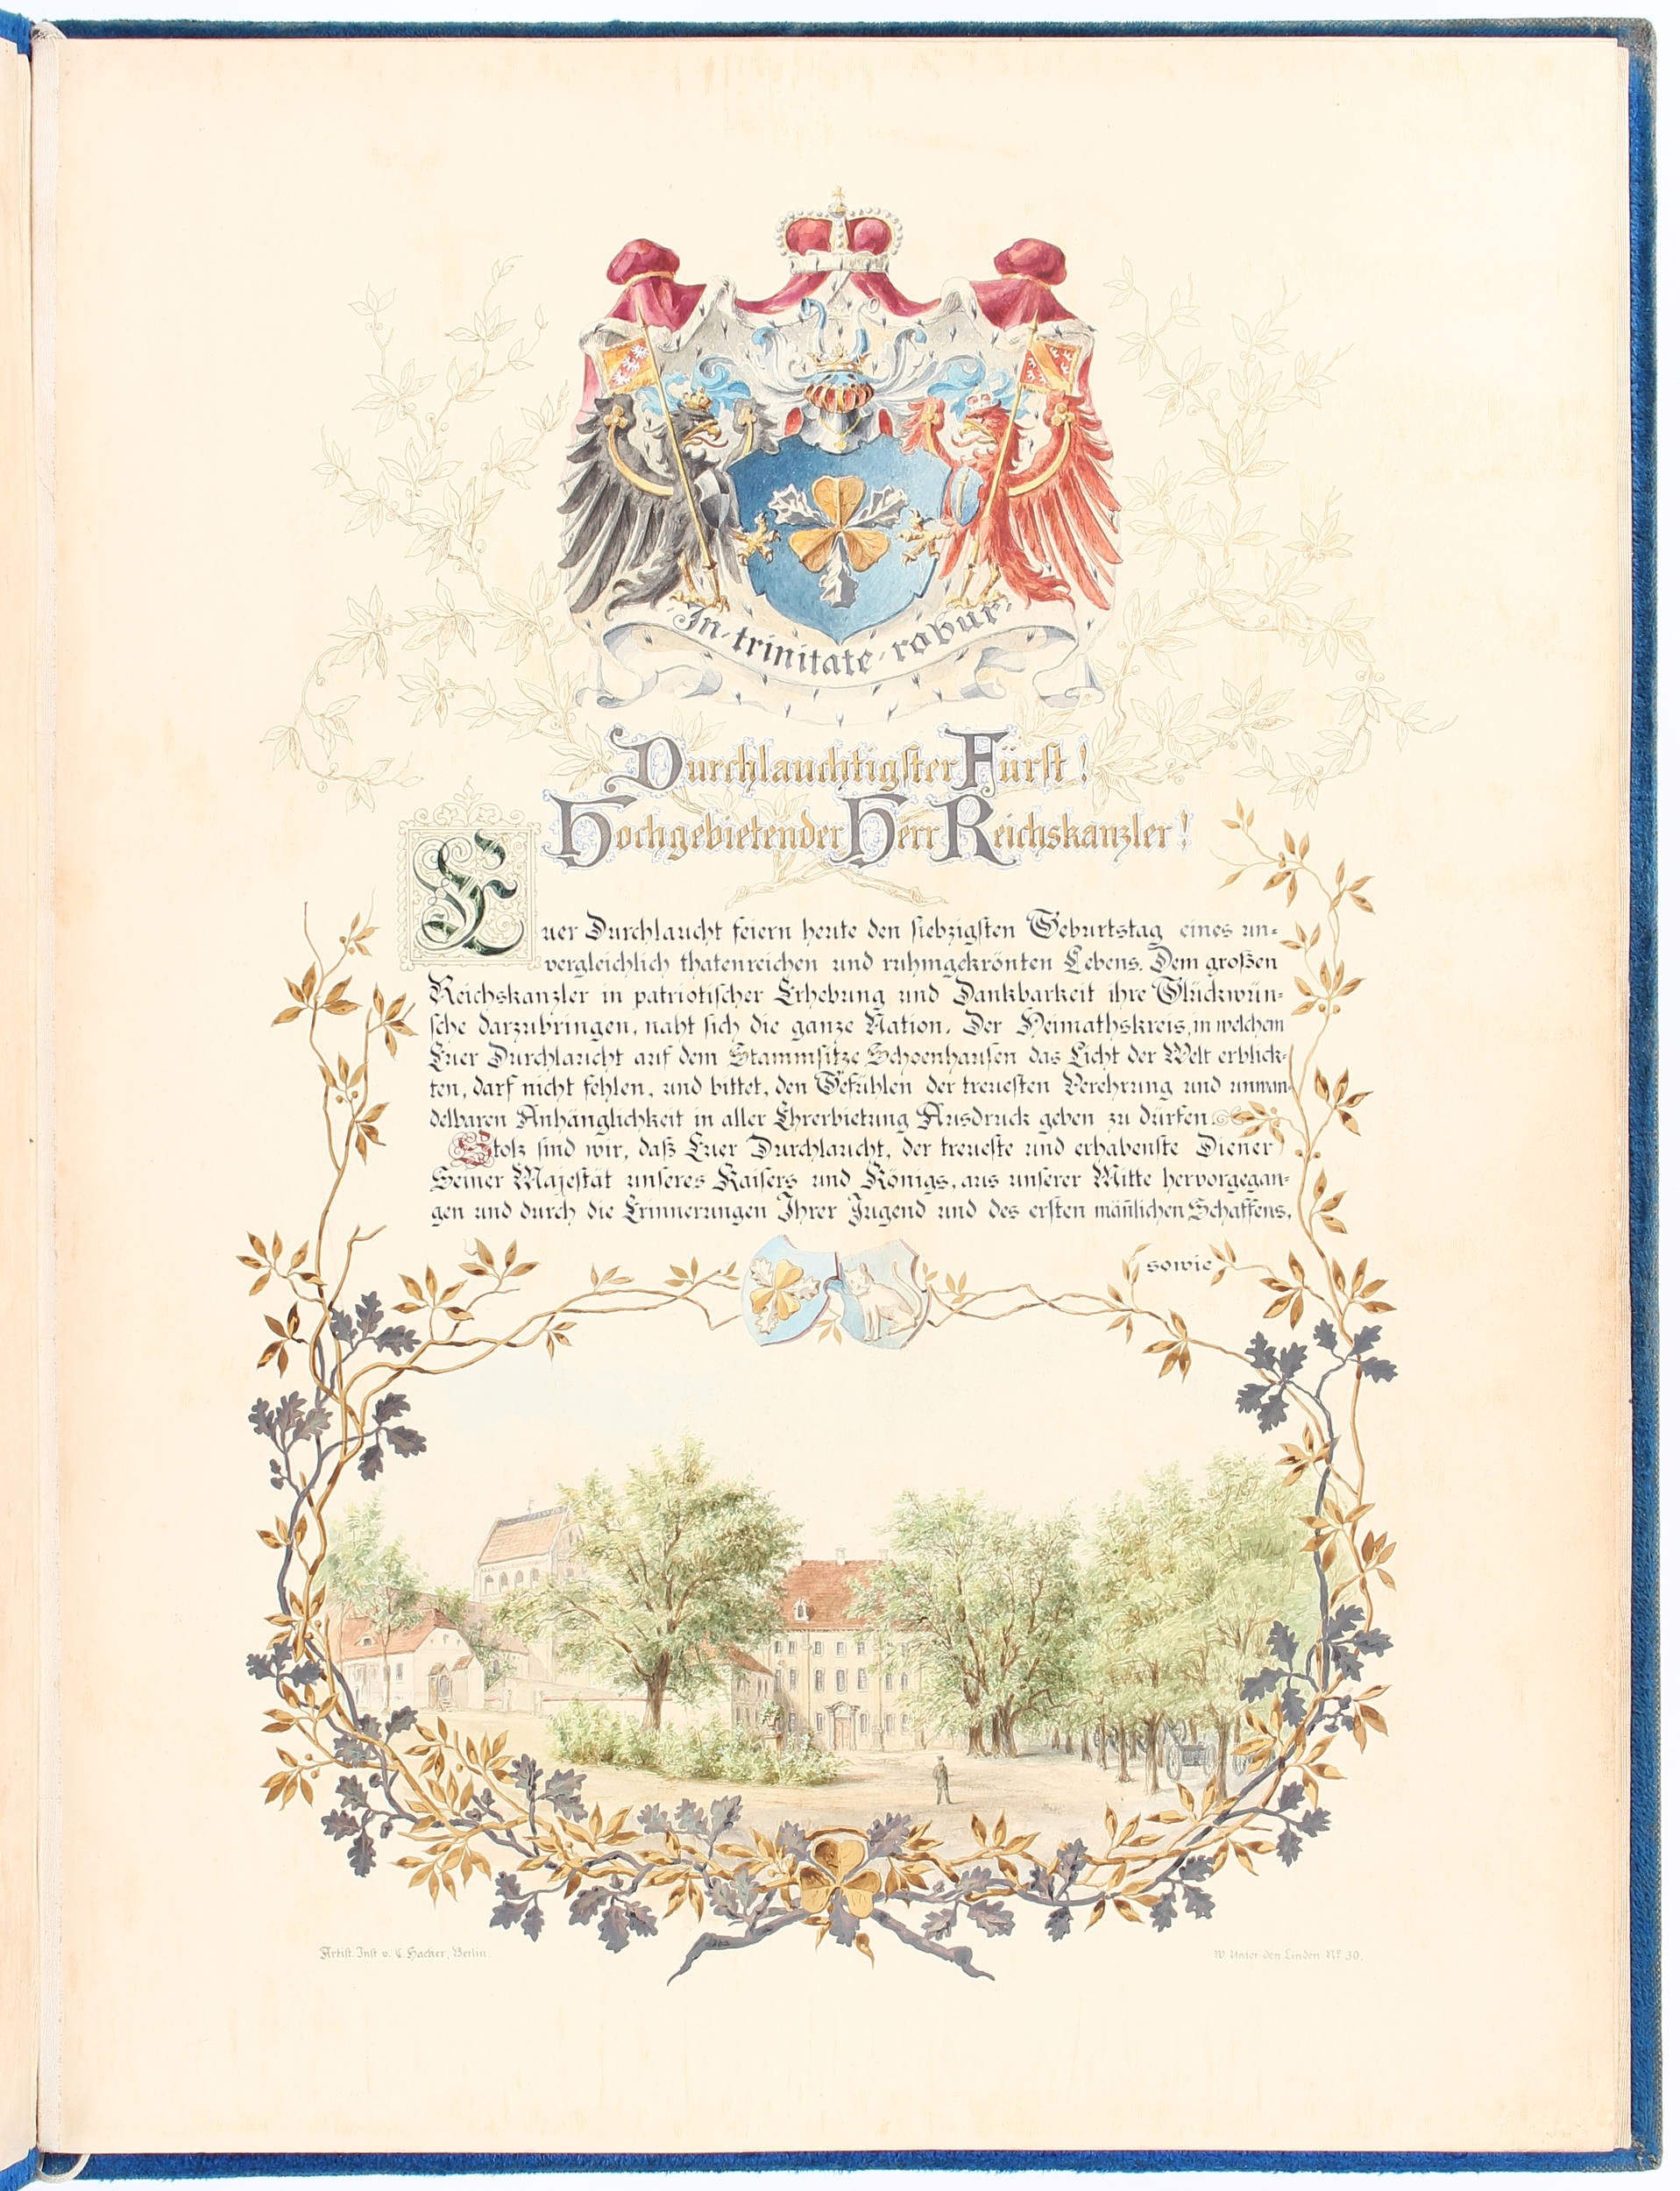 In · trinitate · robur
Durchlauchtigster Fürst!
Hochgebietender Herr Reichskanzler!
Euer Durchlaucht feiern heute den siebzigsten Geburtstag eines un-
vergleichlich thatenreichen und ruhmgekrönten Lebens. Dem großen
Reichskanzler in patriotischer Erhebung und Dankbarkeit ihre Glückwün-
sche darzubringen, naht sich die ganze Nation. Der Heimathskreis, in welchem
Euer Durchlaucht auf dem Stammsitze Schoenhausen das Licht der Welt erblick-
ten, darf nicht fehlen, und bittet, den Gefühlen der treuesten Verehrung und unwan-
delbaren Anhänglichkeit in aller Ehrerbietung Ausdruck geben zu dürfen.
Stolz sind wir, daß Euer Durchlaucht, der treueste und erhabenste Diener
Seiner Majestät unseres Kaisers und Königs, aus unserer Mitte hervorgegan-
gen und durch die Erinnerungen Ihrer Jugend und des ersten män̄lichen Schaffens,
sowie
Artist. Inst v. C. Hacker, Berlin.
W. Unter den Linden. No 30.